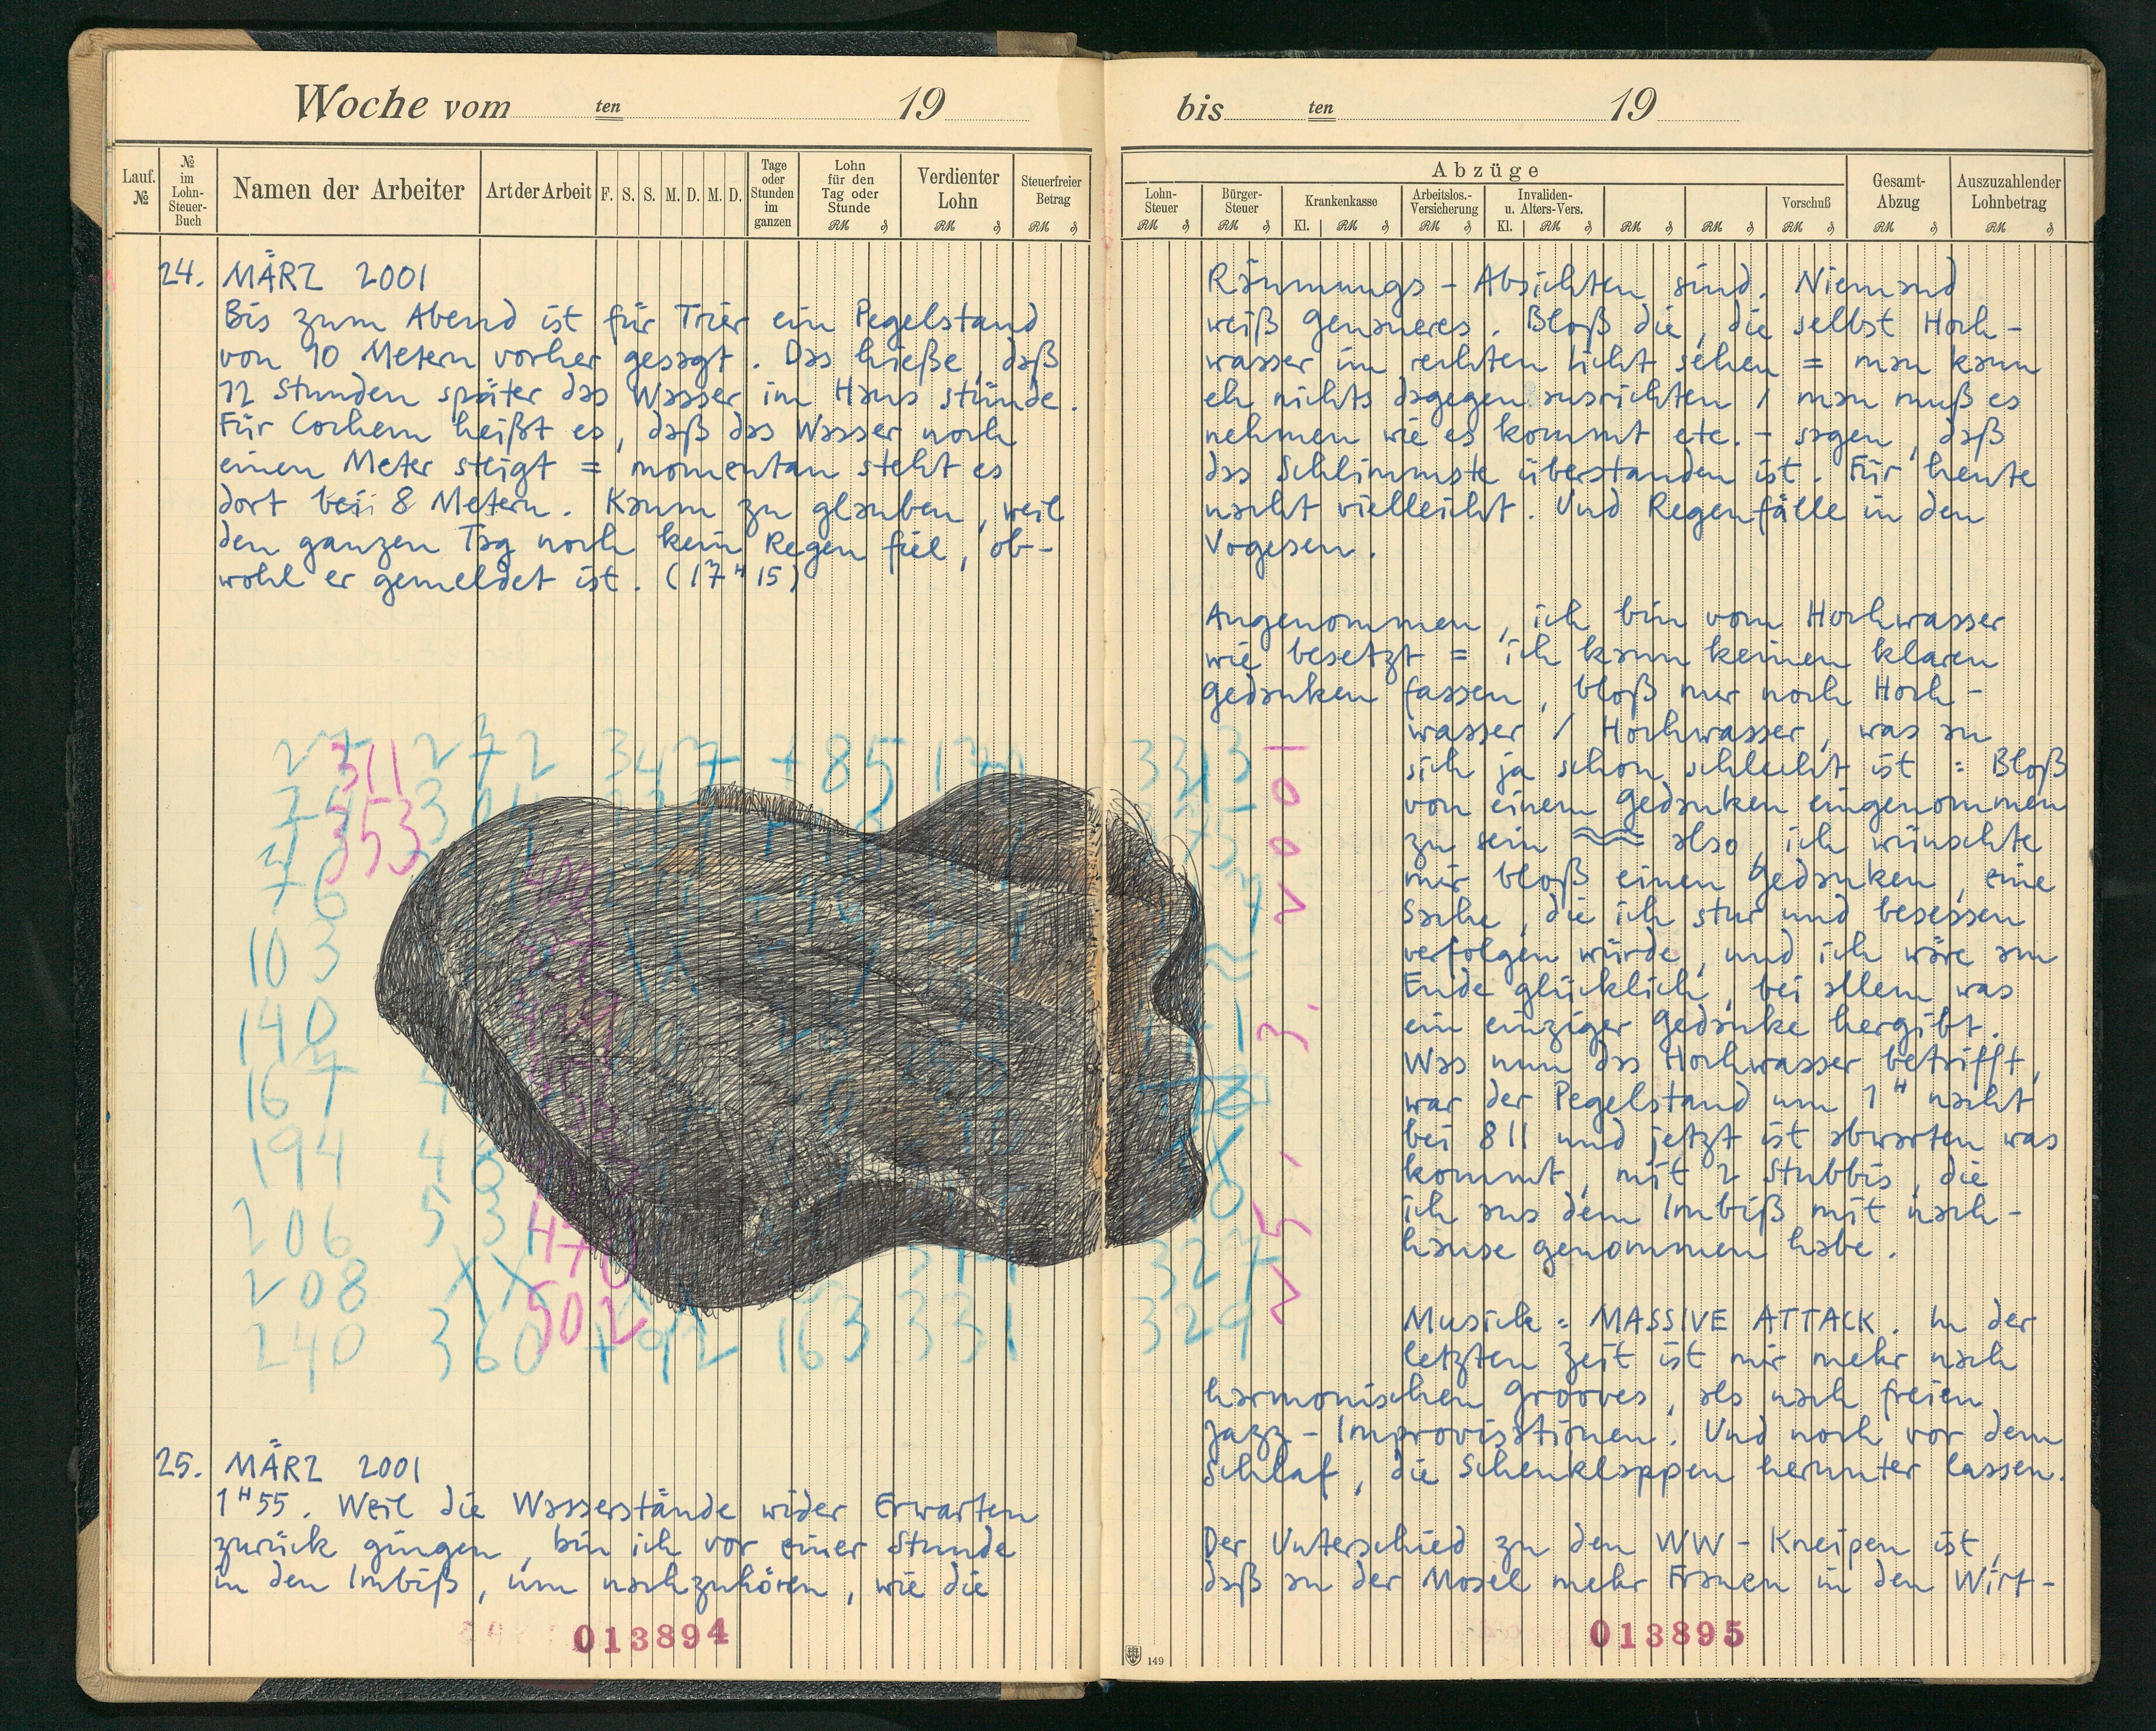 Woche vom ten 19
Lauf. №
№ im Lohn-Steuer-Buch
Namen der Arbeiter
Art der Arbeit
F. S. S. M. D. M. D.
Tage oder Stunden im ganzen
Lohn für den Tag oder Stunde
Verdienter Lohn
Steuerfreier Betrag
24. MÄRZ 2001
Bis zum Abend ist für Trier ein Pegelstand
von 10 Metern vorher gesagt. Das hieße, daß
12 Stunden später das Wasser im Haus stünde.
Für Cochem heißt es, daß das Wasser noch
einen Meter steigt = momentan steht es
dort bei 8 Metern. Kaum zu glauben, weil
den ganzen Tag noch kein Regen fiel, ob-
wohl er gemeldet ist. (17H15)
311
353
272
347
+85
103
140
167
194
206
208
240
53
XX
360
470
502
+92
163
331
25. MÄRZ 2001
1H55. Weil die Wasserstände wider Erwarten
zurück gingen, bin ich vor einer Stunde
in den Imbiß, um nachzuhören, wie die
013894
bis ten 19
Abzüge
Lohn-Steuer
Bürger-Steuer
Krankenkasse
Arbeitslos.-Versicherung
Invaliden- u. Alters-Vers.
Vorschuß
Gesamt-Abzug
Auszuzahlender Lohnbetrag
RM ₰ RM ₰ Kl. RM ₰ RM ₰ Kl. RM ₰ RM ₰ RM ₰ RM ₰ RM ₰ RM ₰
Räumungs-Absichten sind. Niemand
weiß genaueres. Bloß die, die selbst Hoch-
wasser im rechten Licht sehen = man kann
eh nichts dagegen ausrichten / man muß es
nehmen wie es kommt etc. - sagen, daß
das Schlimmste überstanden ist. Für heute
nacht vielleicht. Und Regenfälle in den
Vogesen.
Angenommen, ich bin vom Hochwasser
wie besetzt = ich kann keinen klaren
Gedanken fassen, bloß nur noch Hoch-
wasser / Hochwasser, was an
sich ja schon schlecht ist = Bloß
von einem Gedanken eingenommen
zu sein also, ich wünschte
mir bloß einen Gedanken, eine
Sache, die ich stur und besessen
verfolgen würde, und ich wäre am
Ende glücklich, bei allem was
ein einziger Gedanke hergibt.
Was nun das Hochwasser betrifft,
war der Pegelstand um 1H nacht
bei 811 und jetzt ist abwarten was
kommt, mit 2 Stubbis, die
ich aus dem Imbiß mit nach-
hause genommen habe.
Musick = MASSIVE ATTACK. In der
letzten Zeit ist mir mehr nach
harmonischen Grooves, als nach freien
Jazz-Improvisationen. Und noch vor dem
Schlaf, die Schenklappen herunter lassen.
Der Unterschied zu den WW-Kneipen ist,
daß an der Mosel mehr Frauen in den Wirt-
3313
327
329
25. 3. 2001
013895
149